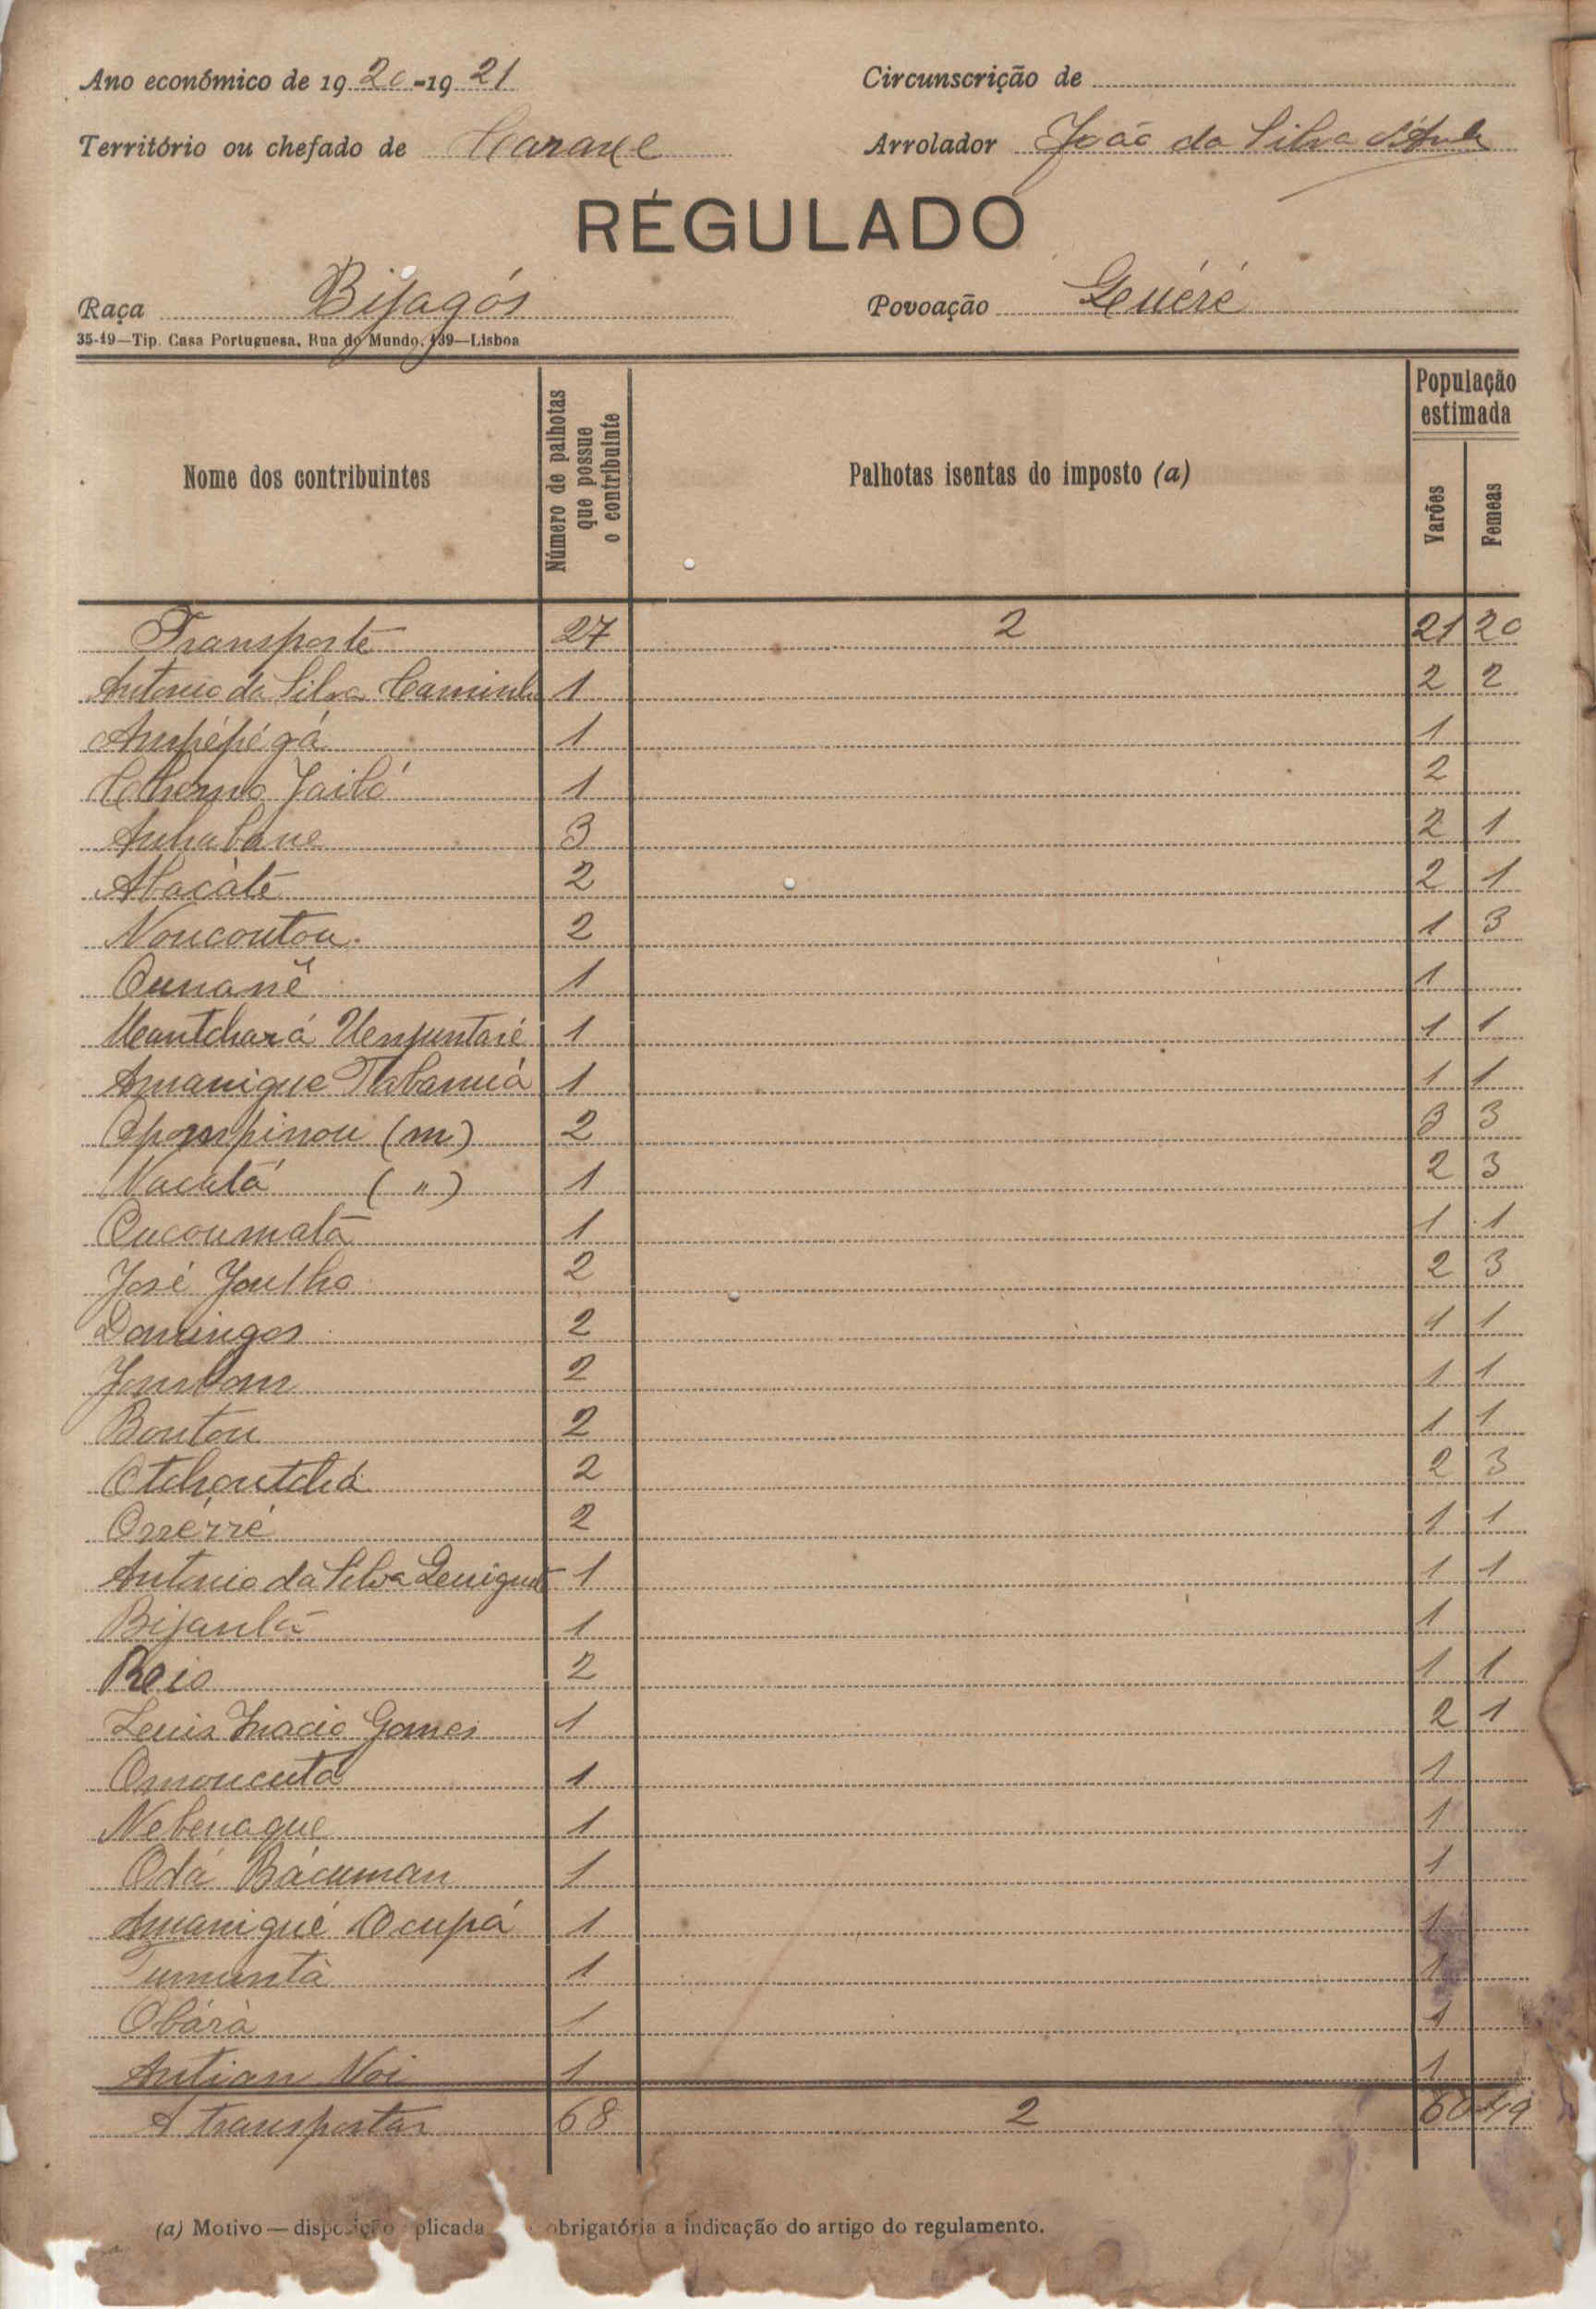 Ano económico de 1920-1921
Circunscrição de
Território ou chefado de Caraxe
Arrolador João da Silva
RÉGULADO
Raça Bijagós
Povoação
35-19—Tip. Casa Portuguesa, Rua do Mundo, 139—Lisboa
Nome dos contribuintes
Número de palhotas que possue o contribuinte
Palhotas isentas do imposto (a)
População estimada
Varões
Femeas
Transporte 27 2 21 20
Antonio da Silva Caminha 1 2 2
Ampépégá 1 1
1 2
3 2 1
Abacàte 2 2 1
Noucoutou 2 1 3
Ounanê 1 1
Mantchará 1 1 1
Amanigue 1 1 1
Opompinou (m) 2 3 3
(") 1 2 3
Oucoumatã 1 1 1
José Joulho 2 2 3
Domingos 2 1 1
Joubam 2 1 1
Boutou 2 1 1
Otchoutchá 2 2 3
Osserré 2 1 1
Antonio da Silva 1 1 1
1 1
Reis 2 1 1
Leuis Inacio Gomes 1 2 1
Omoucutá 1 1
Nebenaque 1 1
Odá Bácuman 1 1
Amanigué Ocupá 1 1
Tumuntà 1 1
Obárà 1 1
Antian Noi 1 1
A transportar 68 2 60 49
(a) Motivo—disposição plicada obrigatória a indicação do artigo do regulamento.